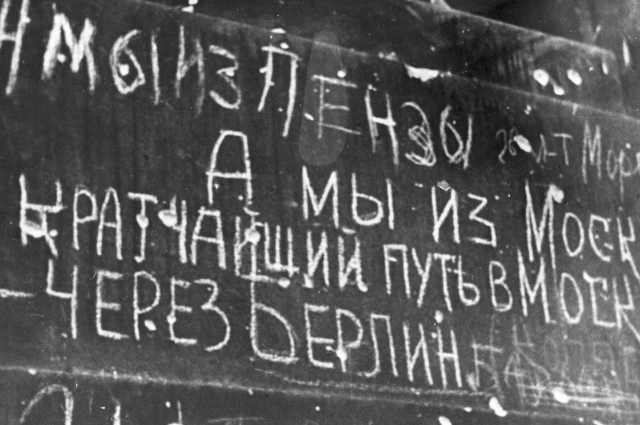 МЫ ИЗ ПЕНЗЫ
А МЫ ИЗ МОСК
КРАТЧАЙШИЙ ПУТЬ В МОСК
– ЧЕРЕЗ БЕРЛИН